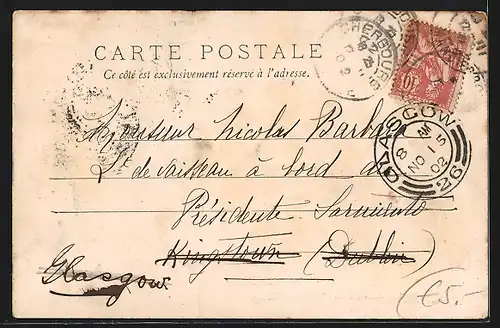 CARTE POSTALE
Ce côté est exclusivement réservé à l'adresse.
CHERBOURG
GLASGOW
8 AM
NO 15
02
26
Monsieur Nicolas Barbará
L. de vaisseau à bord de
Présidente Sarmiento
Kingstown (Dublin)
Glasgow
€5.-